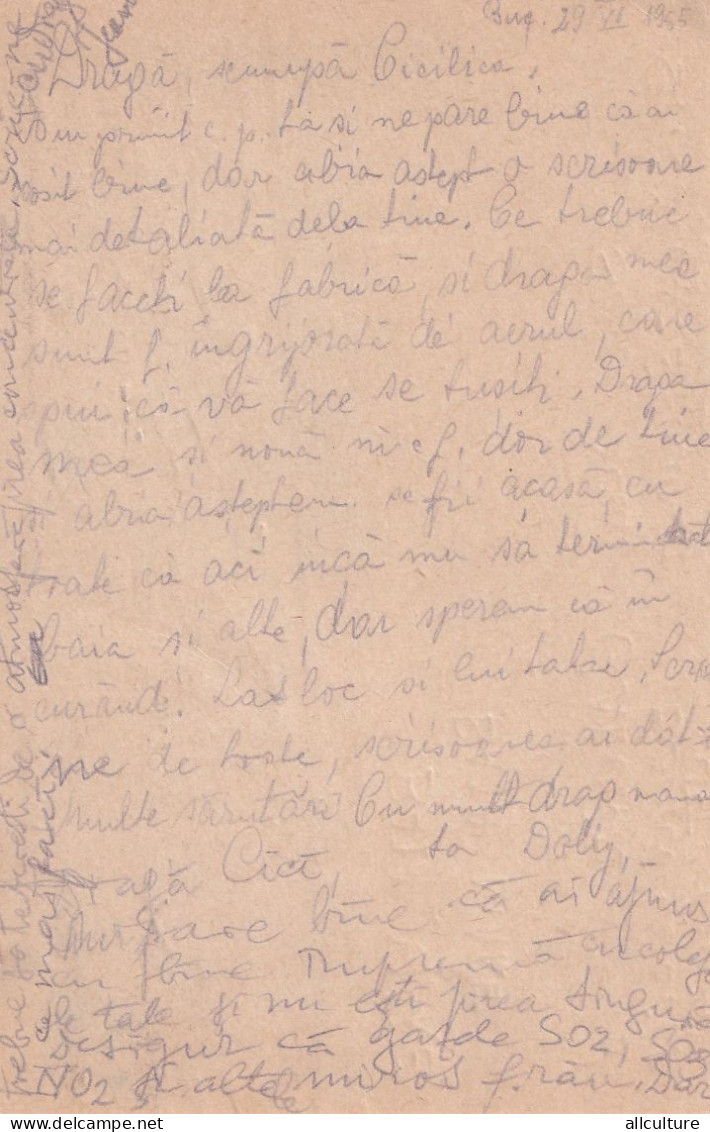 Buc. 29 VI 1955
Dragă, scumpă Cicilica,
Am primit c. p. ta si ne pare bine că ai
sosit bine, dar abia astept o scrisoare
mai detaliată dela tine. Ce trebue
se faceti la fabrică, si draga mea
sunt f. îngrijorată de aerul, care
spui că vă face se tusiti. Draga
mea si nouă ni-e f. dor de tine
si abia asteptem se fii acasă, cu
toate că aci incă nu sa terminat
baia si alte, dar speram că în
curănd. Las loc si lui tata. Scrie
ne de toate, scrisoarea ai dat-
Multe sărutări Cu mult drag mama
ta Dolly,
Dragă Cici,
Imi pare bine că ai ajuns
cu bine împreună cu colege
le tale și nu ești prea singură
Desigur că gazele SO2, SO3
NO2 și altele miros f. rău. Dar
trebue să te ferești de o atmosferă prea
ce mai faci